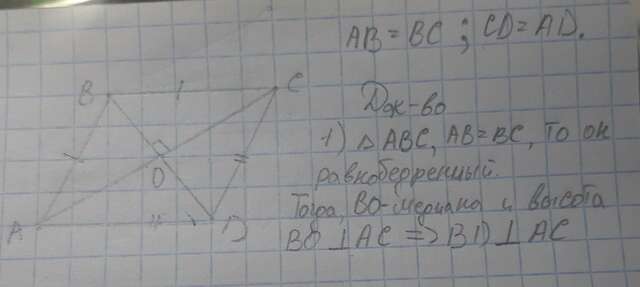 AB = BC ; CD = AD.
B
C
Док-во
1) △ABC, AB=BC, то он
равноберренный.
O
Тогра, BO-мериана и высота
A
D
BO ⊥ AC => BD ⊥ AC